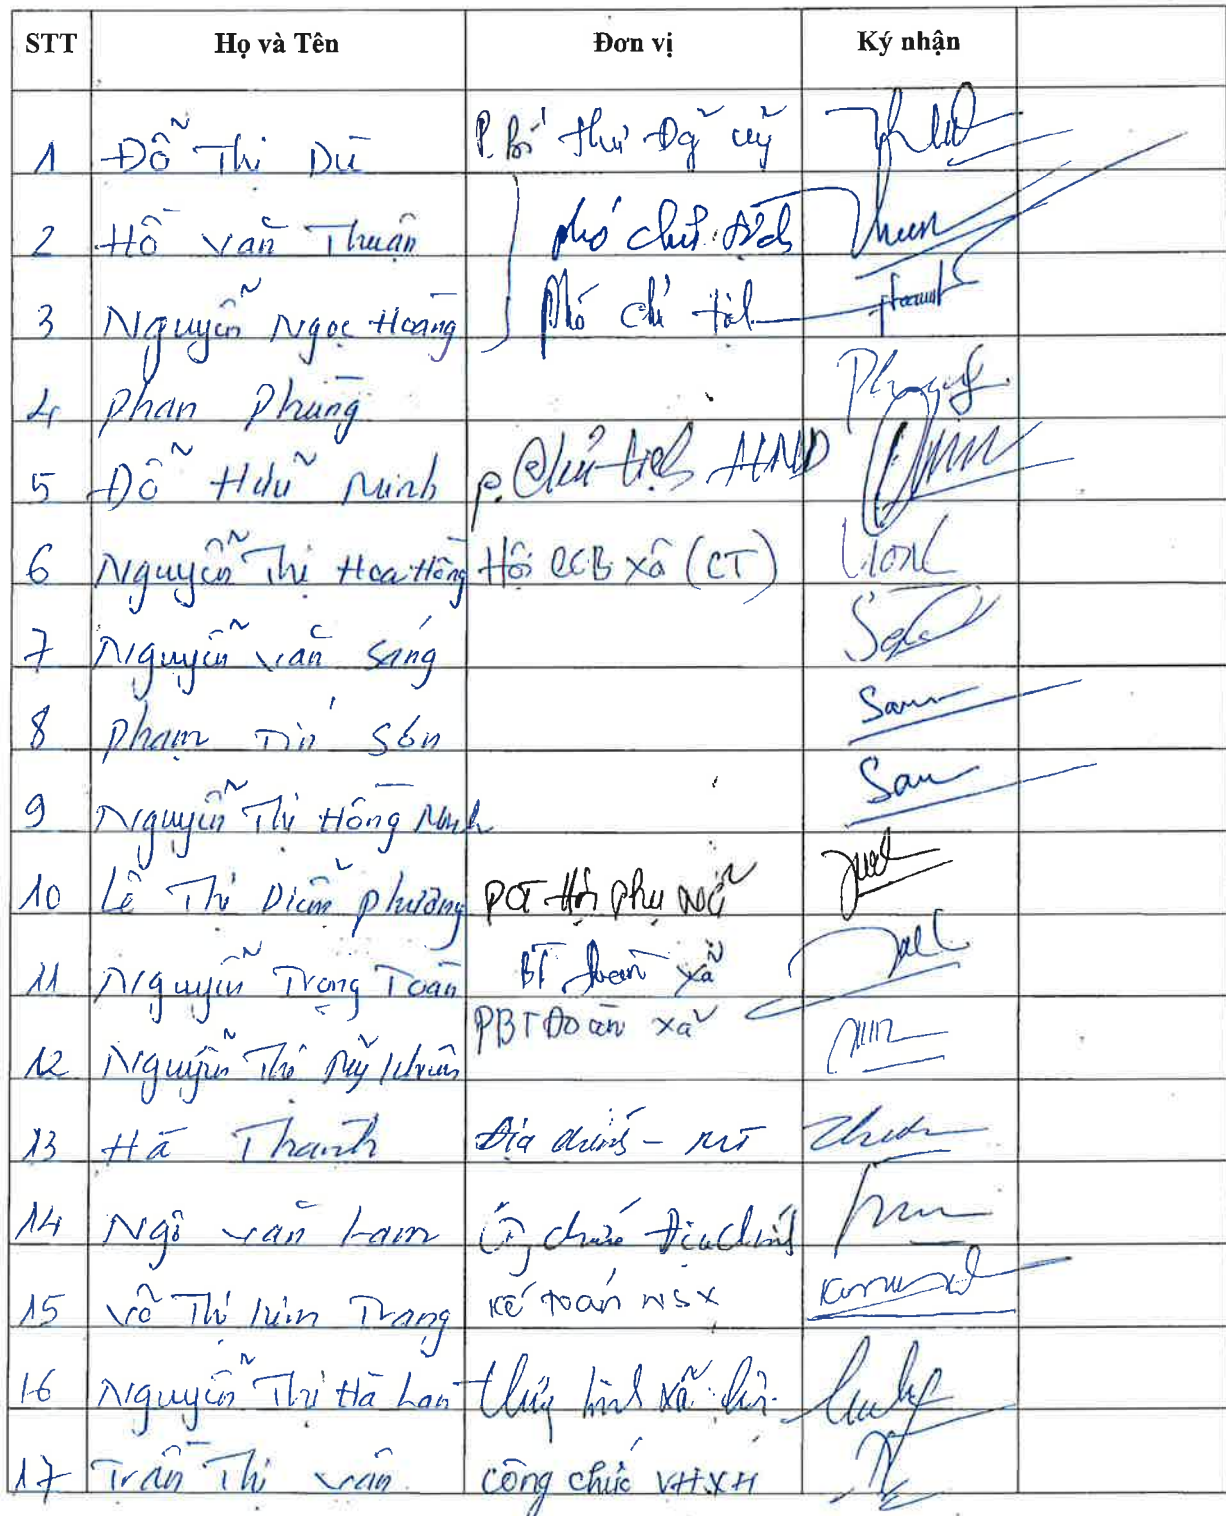 STT Họ và Tên Đơn vị Ký nhận
1 Đỗ Thị Dũ P. Bí thư Đg uỷ
2 Hồ Văn Thuận phó chủ tịch
3 Nguyễn Ngọc Hoàng Phó chủ tịch
4 Phan Phùng
5 Đỗ Hữu Minh P. Chủ tịch HND
6 Nguyễn Thị Hoa Hồng Hội CCB xã (CT)
7 Nguyễn Văn Sáng
8 Phạm Tin Sơn San
9 Nguyễn Thị Hồng Minh San
10 Lê Thị Diễm Phương PCT Hội phụ nữ
11 Nguyễn Trọng Toàn BT Đoàn xã
12 Nguyễn Thị Mỹ PBT Đoàn xã
13 Hà Thanh Địa chính - MT
14 Ngô Văn Lam chức Địa chính
15 Võ Thị Kim Trang Kế toán NSX
16 Nguyễn Thị Hà Lan xã
17 Trần Thị Vân công chức VHXH